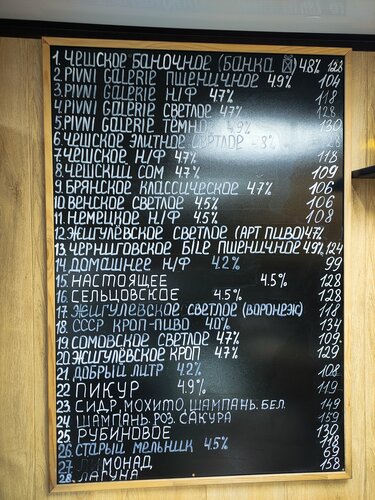 1. ЧЕШСКОЕ БАНОЧНОЕ (БАНКА) 4.8% 123
2. PIVNI GALERIE ПШЕНИЧНОЕ 4.9% 104
3. PIVNI GALERIE Н/Ф 4.7% 118
4. PIVNI GALERIE СВЕТЛОЕ 4.7% 128
5. PIVNI GALERIE ТЕМНОЕ 4.9% 130
6. ЧЕШСКОЕ ЭЛИТНОЕ СВЕТЛОЕ 128
7. ЧЕШСКОЕ Н/Ф 4.7% 118
8. ЧЕШСКИЙ СОМ 4.7% 109
9. БРЯНСКОЕ КЛАССИЧЕСКОЕ 4.7% 106
10. ВЕНСКОЕ СВЕТЛОЕ 4.5% 106
11. НЕМЕЦКОЕ Н/Ф 4.5% 108
12. ЖИГУЛЁВСКОЕ СВЕТЛОЕ (АРТ ПИВО) 4.7%
13. ЧЕРНИГОВСКОЕ БІЛЕ ПШЕНИЧНОЕ 4.9% 124
14. ДОМАШНЕЕ Н/Ф 4.2% 99
15. НАСТОЯЩЕЕ 4.5% 128
16. СЕЛЬЦОВСКОЕ 4.5% 128
17. ЖИГУЛЕВСКОЕ СВЕТЛОЕ (ВОРОНЕЖ) 118
18. СССР КРОП-ПИВО 4.0% 134
19. СОМОВСКОЕ СВЕТЛОЕ 4.7% 109
20. ЖИГУЛЁВСКОЕ КРОП 4.7% 129
21. ДОБРЫЙ ЛИТР 4.2% 108
22. ПИКУР 4.9% 119
23. СИДР, МОХИТО, ШАМПАНЬ. БЕЛ. 149
24. ШАМПАНЬ. РОЗ. САКУРА 159
25. РУБИНОВОЕ 130
26. СТАРЫЙ МЕЛЬНИК 4.5% 118
27. ЛИМОНАД 69
28. ЛАГУНА 158